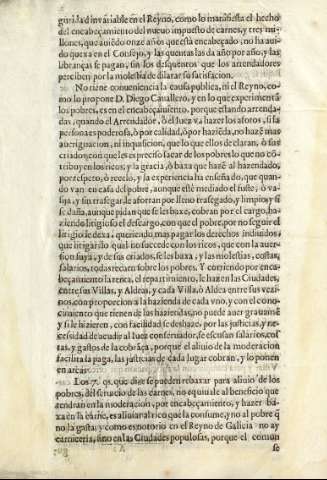 guridad inuariable en el Reyno, como lo manifiesta el hecho
del encabeçamiento del nueuo impuesto de carnes, y tres mi-
llones, que auiẽdo onze años que està encabeçado, no ha aui-
do quexa en el Consejo, y las quentas las da año por año, y las
libranças se pagan, sin los desquentos que los arrendadores
perciben por la molestia de dilatar su satisfacion.
No tiene conueniencia la causa publica, ni el Reyno, co-
mo lo propone D. Diego Cauallero, y en lo que experimentã
los pobres, es en el encabeçamiento, porque estando arrenda-
das, quando el Arrendador, ò el Iuez và à hazer los aforos, si la
persona es poderosa, ò por calidad, ò por haziẽda, no hazẽ mas
aueriguacion, ni inquisicion, que lo que ellos declaran, ò sus
criados; con que les es preciso sacar de los pobres lo que no cõ-
tribuyen los ricos; y la gracia, ò baxa que hazẽ al hazendado,
por respeto, ò recelo, y la experiencia ha enseñado, que quan-
do van en casa del pobre, aunque estè mediado el fuste, ò va-
sija, y sin trasegar, le aforran por lleno trasegado, y limpio, y si
se daña, aunque pidan que se les baxe, cobran por el cargo, ha-
ziendo litigioso el descargo, con que el pobre, por no seguir el
litigio le dexa, queriendo mas pagar los derechos indiuidos
que litigarlo, lo qual no succede con los ricos, que con la auer-
sion suya, y de sus criados, se les baxa, y las molestias, costas,
salarios, todas recaen sobre los pobres. Y corriendo por encа-
beçamiento la renta, el repartimiento, le hazen las Ciudades,
entre sus Villas, y Aldeas, y cada Villa, ò Aldea entre sus vezi-
nos, con proporcion a la hazienda de cada vno, y con el cono-
cimiento que tienen de las haziendas, no puede auer grauamẽ
y si le hizieren, con facilidad se deshaze por las justicias, y ne-
cessidad de acudir al Iuez conseruador, se escusan salarios, cos-
tas, y gastos de la cobrãça, porque el aliuio de la moderacion
facilita la paga, las justicias de cada lugar cobran, y lo ponen
en arcas.
Los 7. qs. que dize se pueden rebaxar para aliuio de los
pobres, del seruicio de las carnes, no equiuale al beneficio que
tendran en la moderacion, por encabeçamiento, y hazer ba-
xa en la carne, es aliuiar al rico que la consume, y no al pobre q̃
no la gasta: y como es notorio en el Reyno de Galicia no ay
carniceria, sino en las Ciudades populosas, porque el comun
se